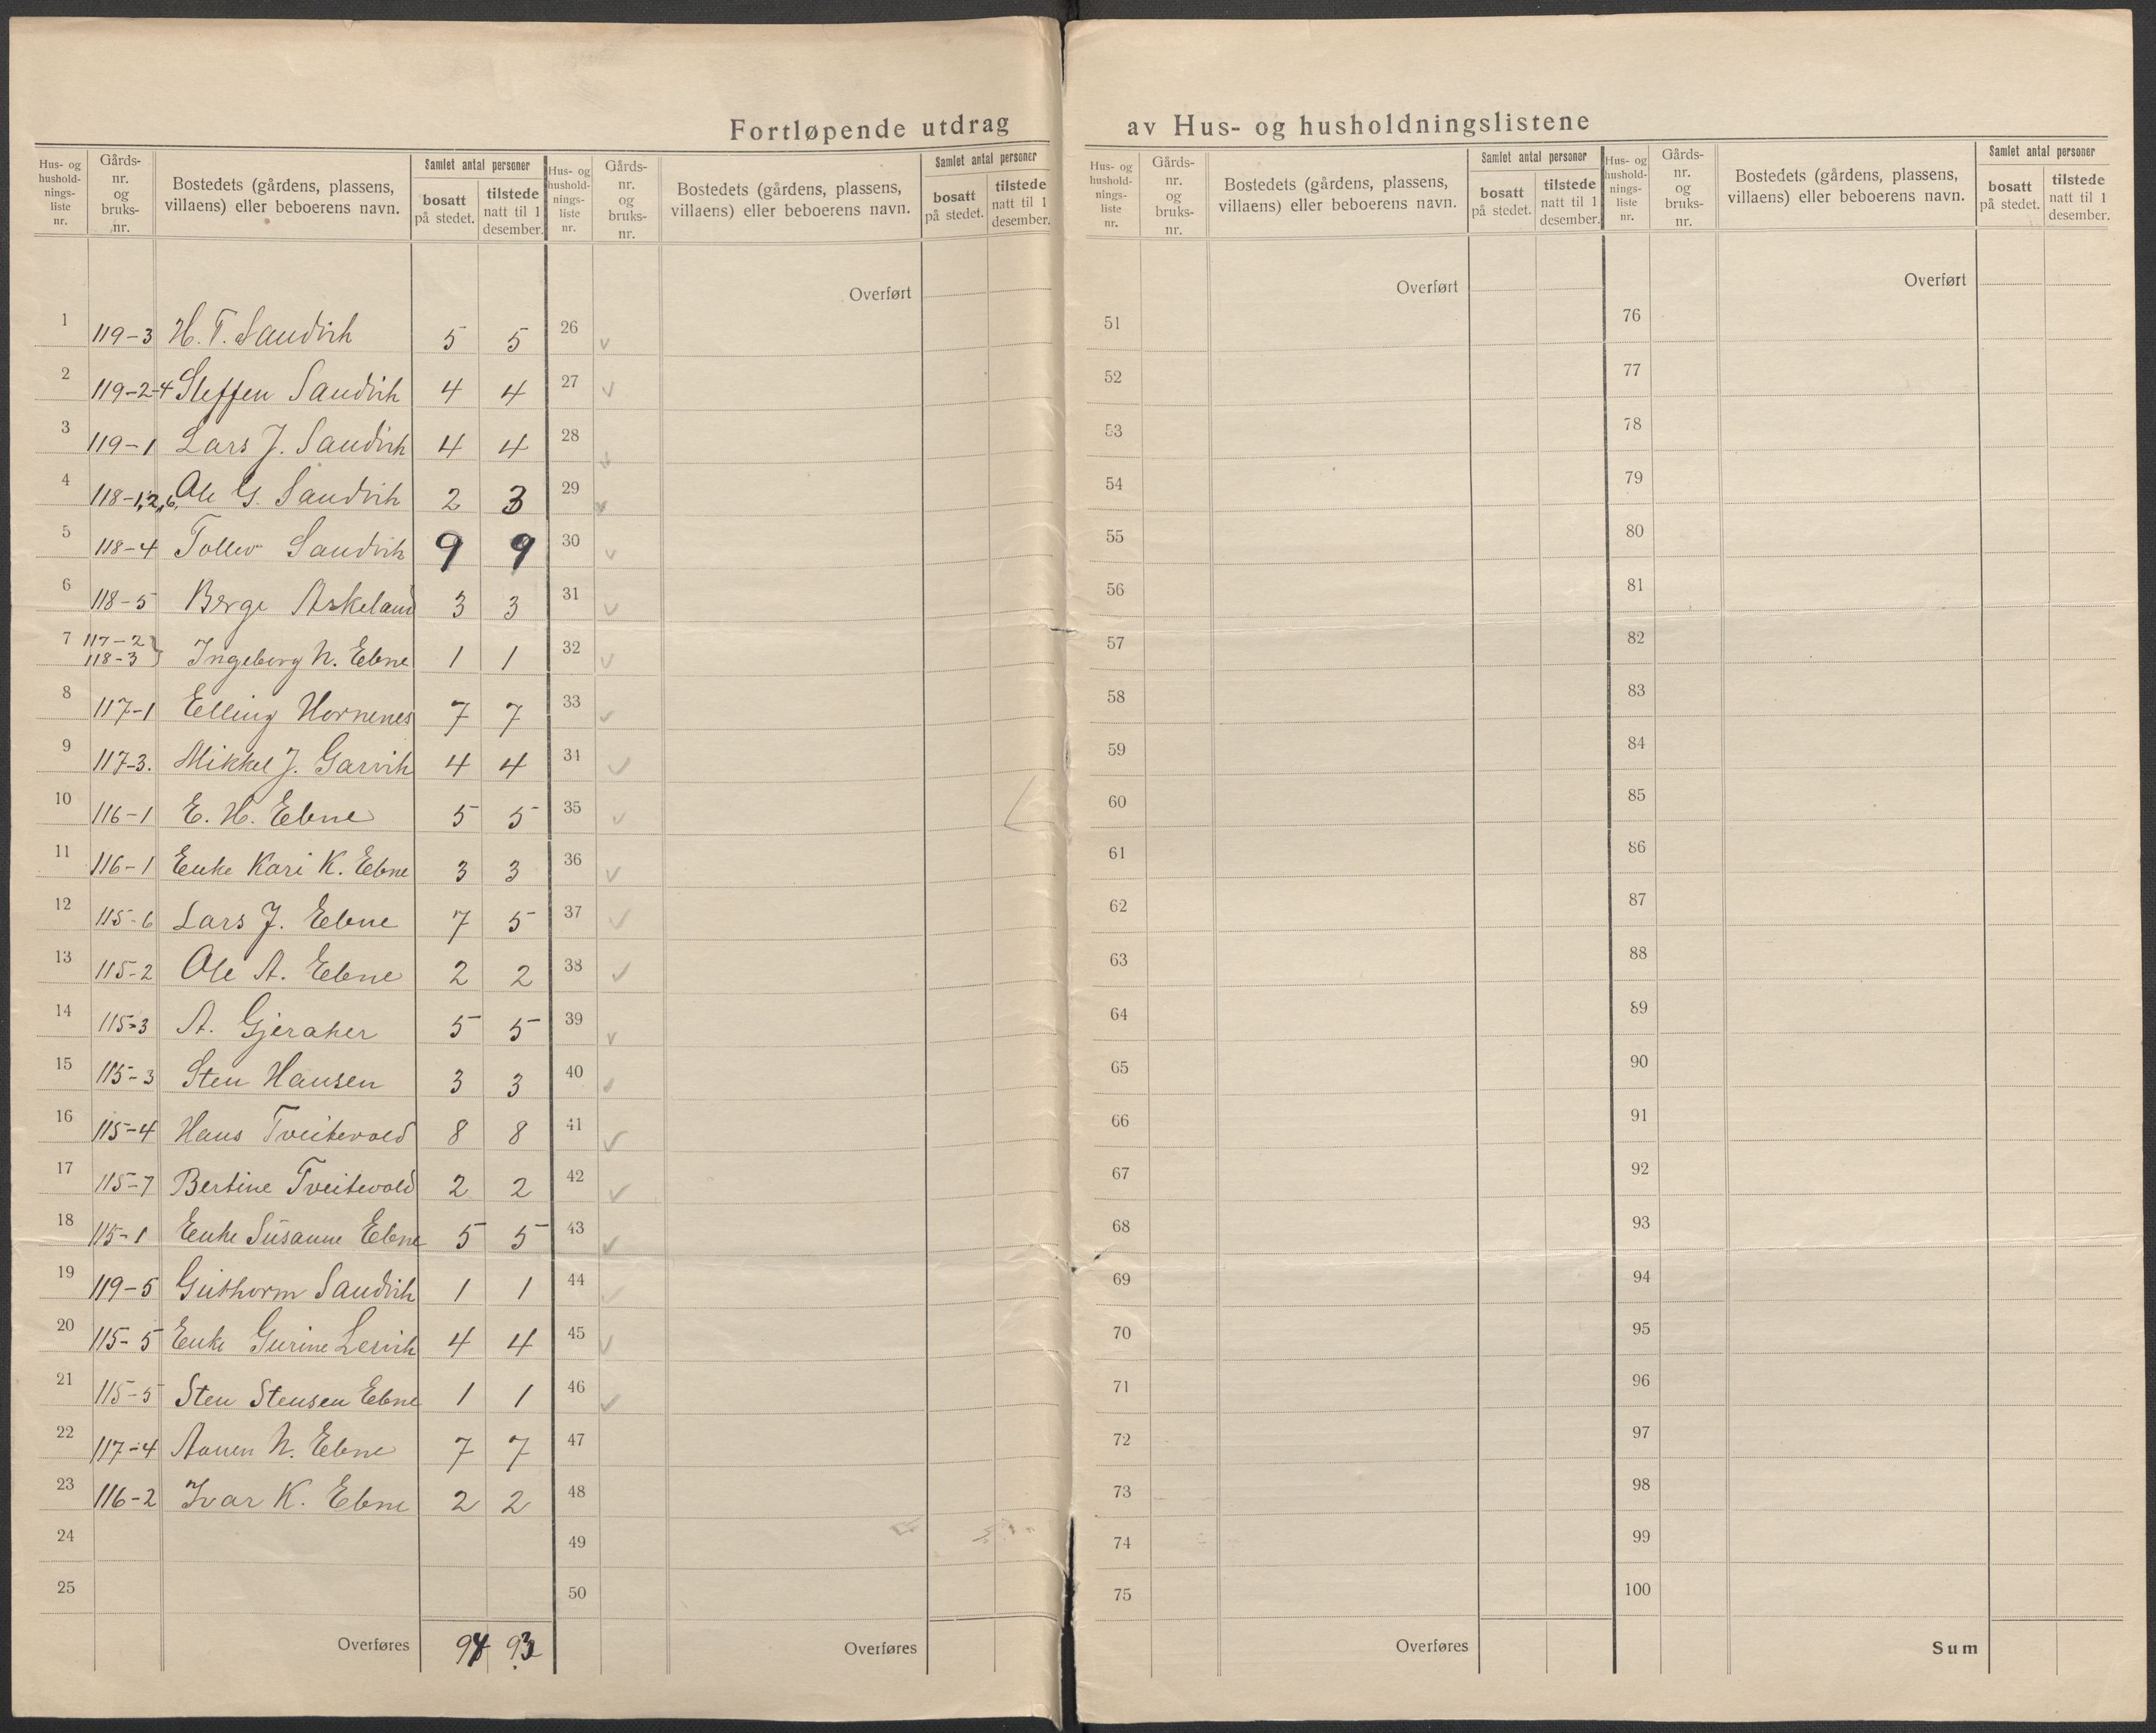 Fortløpende utdrag av Hus- og husholdningslistene
Hus- og hushold-nings-liste nr. Gårds-nr. og bruks-nr. Bostedets (gårdens, plassens, villaens) eller beboerens navn. Samlet antal personer bosatt på stedet. tilstede natt til 1 desember.
1 119-3 H. T. Sandvik 5 5
2 119-2-4 Steffen Sandvik 4 4
3 119-1 Lars J. Sandvik 4 4
4 118-1,2,6, Ole G. Sandvik 2 3
5 118-4 Tollev Sandvik 9 9
6 118-5 Berge Askeland 3 3
7 117-2 118-3 } Ingeborg N. Ebne 1 1
8 117-1 Elling Hornenes 7 7
9 117-3. Mikkel J. Garvik 4 4
10 116-1 E. H. Ebne 5 5
11 116-1 Enke Kari K. Ebne 3 3
12 115-6 Lars J. Ebne 7 5
13 115-2 Ole A. Ebne 2 2
14 115-3 A. Gjeraker 5 5
15 115-3 Sten Hansen 3 3
16 115-4 Hans Tveitevold 8 8
17 115-7 Bertine Tveitevold 2 2
18 115-1 Enke Susanne Ebne 5 5
19 119-5 Guthorm Sandvik 1 1
20 115-5 Enke Gurine Lervik 4 4
21 115-5 Sten Stensen Ebne 1 1
22 117-4 Aanen N. Ebne 7 7
23 116-2 Ivar K. Ebne 2 2
24
25
Overføres 94 93
Hus- og hushold-nings-liste nr. Gårds-nr. og bruks-nr. Bostedets (gårdens, plassens, villaens) eller beboerens navn. Samlet antal personer bosatt på stedet. tilstede natt til 1 desember.
Overført
26
27
28
29
30
31
32
33
34
35
36
37
38
39
40
41
42
43
44
45
46
47
48
49
50
Overføres
Hus- og hushold-nings-liste nr. Gårds-nr. og bruks-nr. Bostedets (gårdens, plassens, villaens) eller beboerens navn. Samlet antal personer bosatt på stedet. tilstede natt til 1 desember.
Overført
51
52
53
54
55
56
57
58
59
60
61
62
63
64
65
66
67
68
69
70
71
72
73
74
75
Overføres
Hus- og hushold-nings-liste nr. Gårds-nr. og bruks-nr. Bostedets (gårdens, plassens, villaens) eller beboerens navn. Samlet antal personer bosatt på stedet. tilstede natt til 1 desember.
Overført
76
77
78
79
80
81
82
83
84
85
86
87
88
89
90
91
92
93
94
95
96
97
98
99
100
Sum